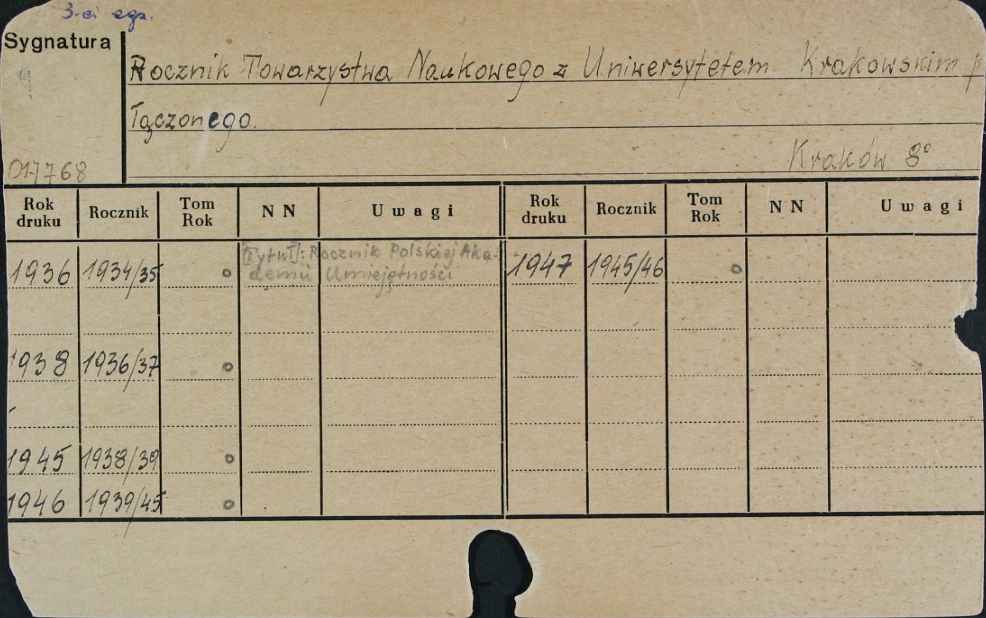 3-ci egz.
Sygnatura
Rocznik Towarzystwa Naukowego z Uniwersytetem Krakowskim p
łączonego.
017768
Kraków 8°
Rok druku Rocznik Tom Rok N N Uwagi Rok druku Rocznik Tom Rok N N Uwagi
1936 1934/35 o [Tytuł]: Rocznik Polskiej Aka- 1947 1945/46 o
demii Umiejętności
1938 1936/37 o
1945 1938/39 o
1946 1939/45 o